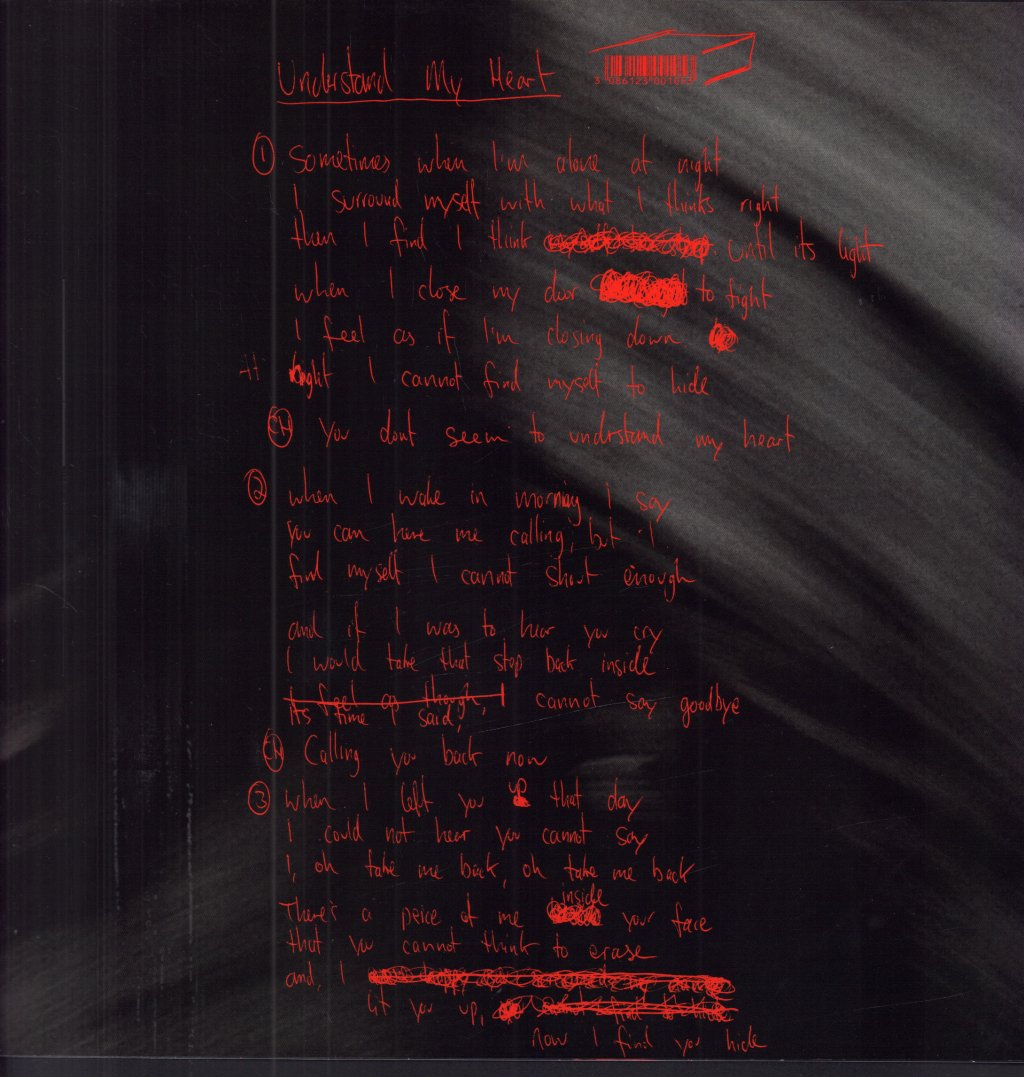 Understand My Heart
① Sometimes when I'm alone at night
I surround myself with what I thinks right
then I find I think until its light
when I close my door to fight
I feel as if I'm closing down
tight I cannot find myself to hide
CH You dont seem to understand my heart
② when I wake in morning I say
you can here me calling, but I
find myself I cannot shout enough
and if I was to hear you cry
I would take that step back inside
I feel as though, I cannot say goodbye
Its time I said,
CH Calling you back now
③ when I left you up that day
I could not hear you cannot say
I, oh take me back, oh take me back
inside
There's a peice of me your face
that you cannot think to erase
and, I
lit you up,
now I find you hide